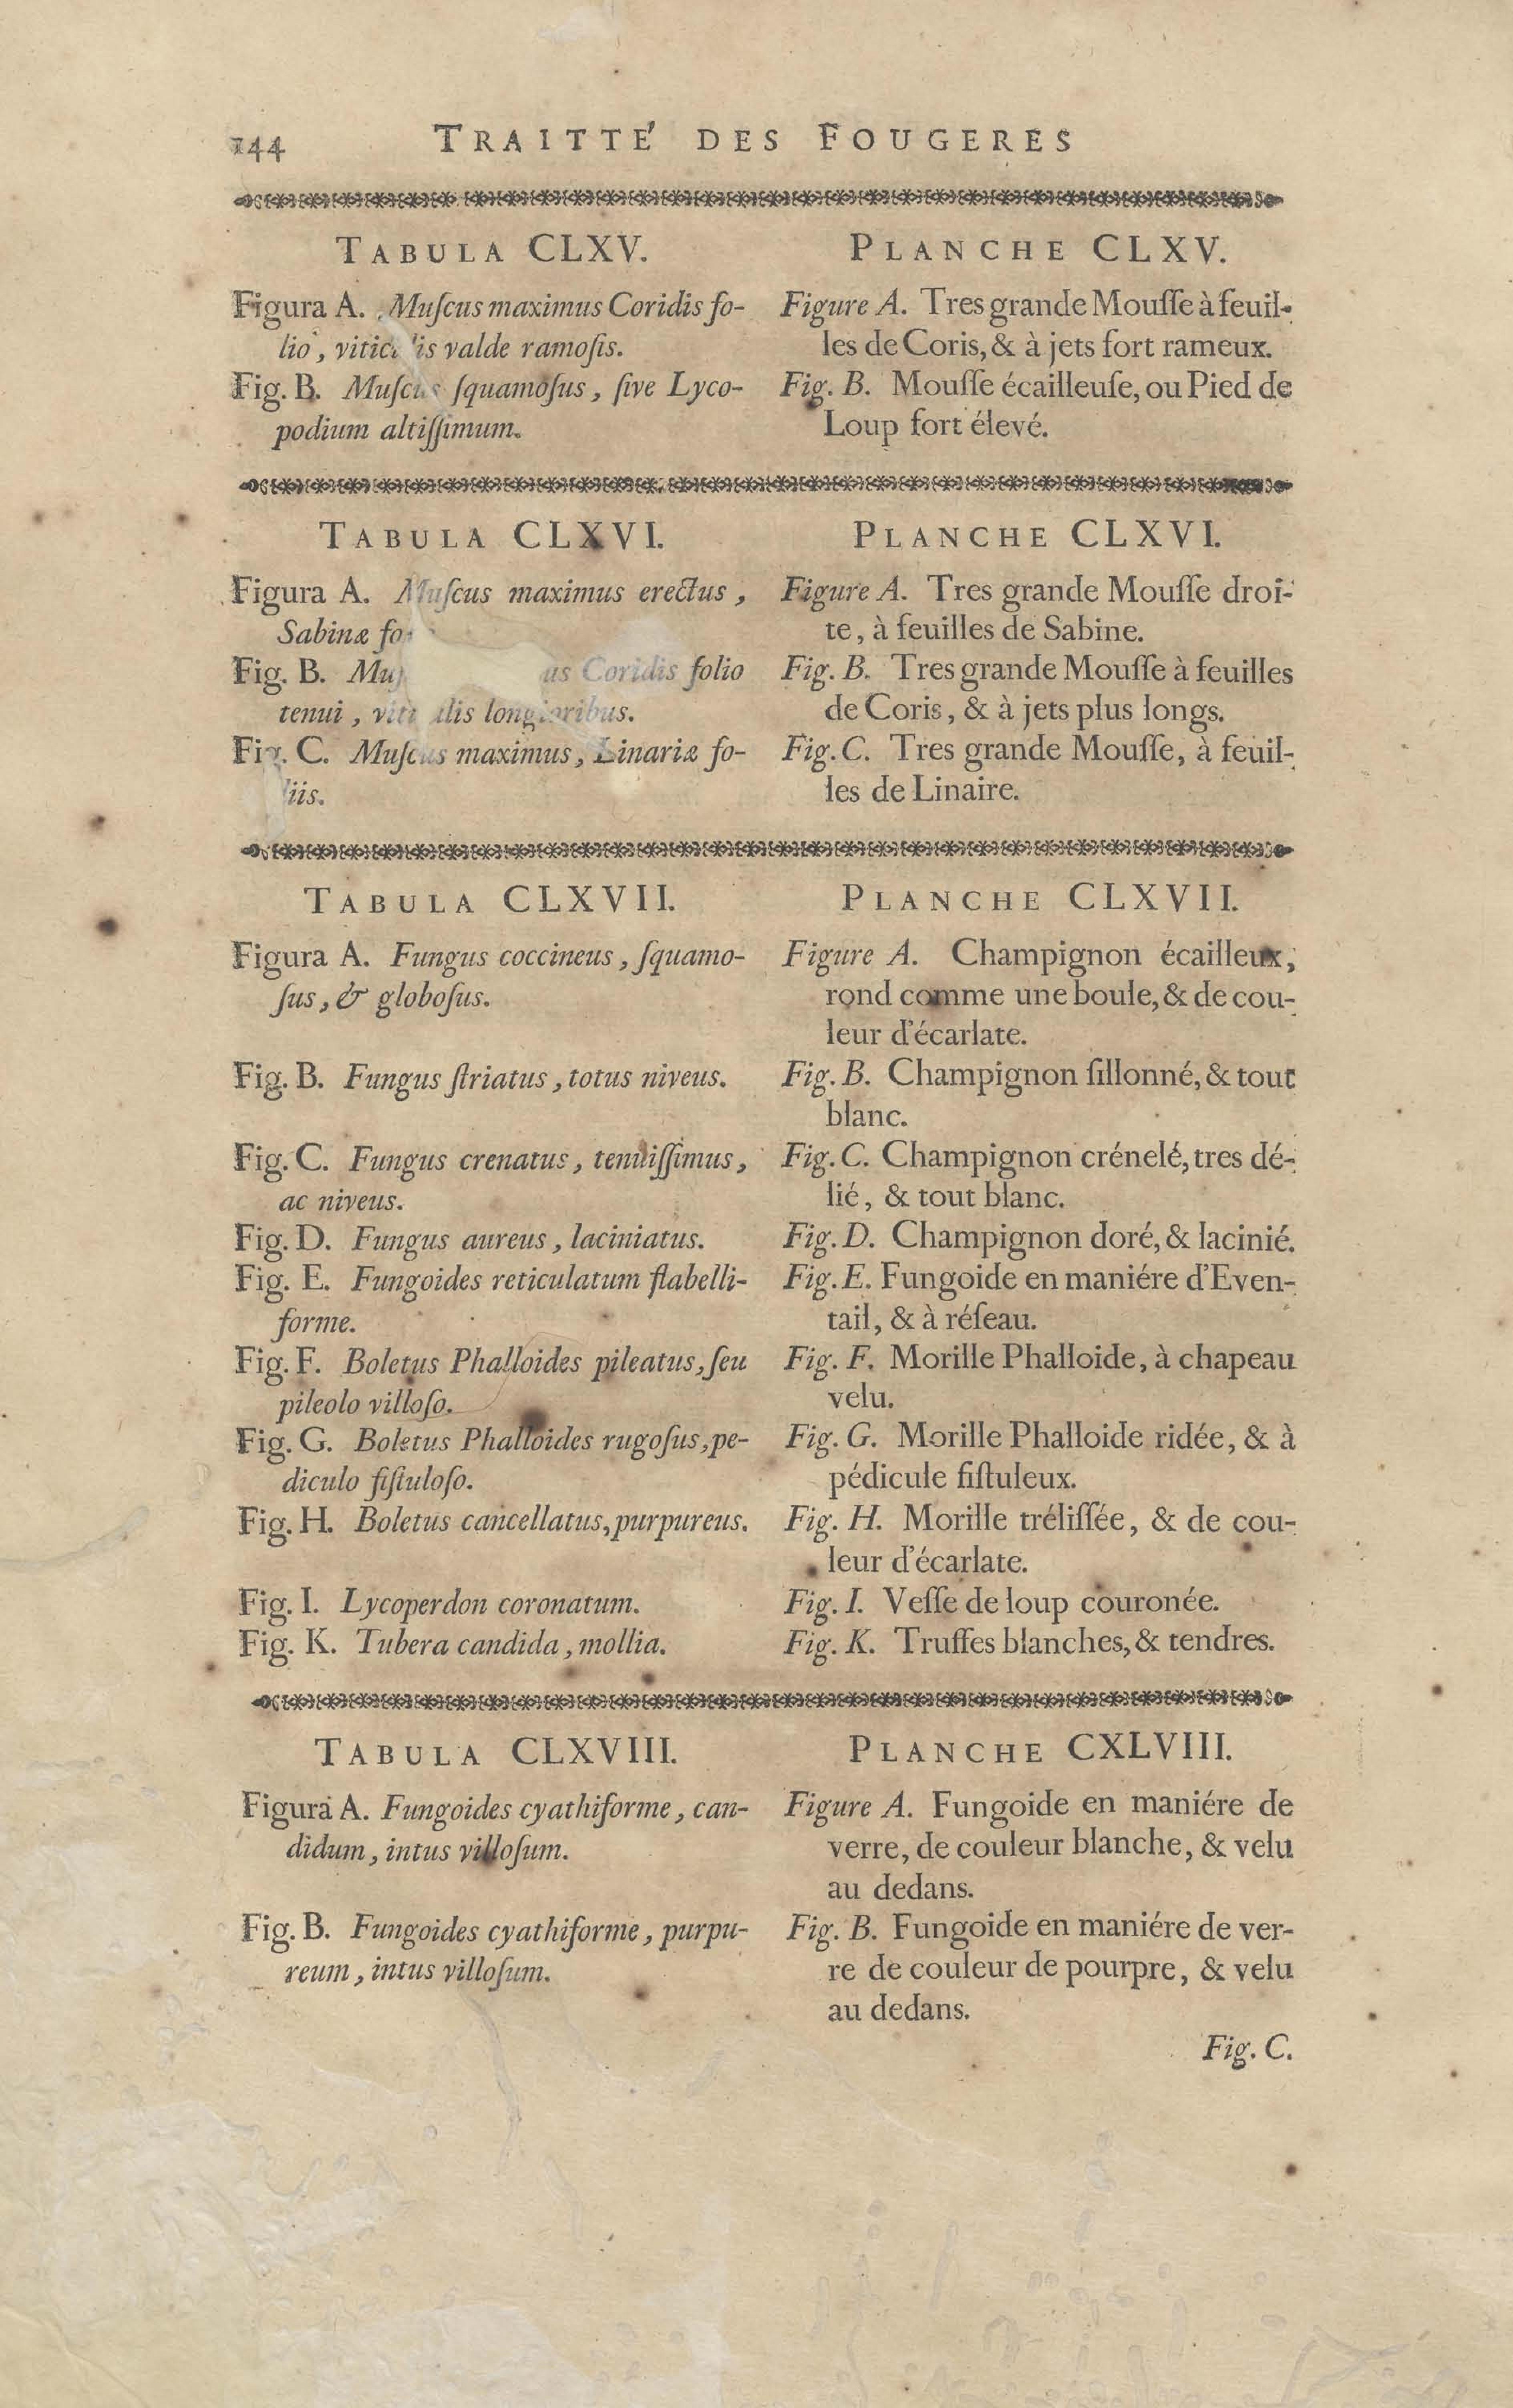 144 TRAITTÉ DES FOUGERES
TABULA CLXV.
Figura A. Muſcus maximus Coridis fo-
lio, valde ramoſis.
Fig. B. ſquamoſus, ſive Lyco-
podium altiſſimum.
PLANCHE CLXV.
Figure A. Tres grande Mouſſe à feuil-
les de Coris, & à jets fort rameux.
Fig. B. Mouſſe écailleuſe, ou Pied de
Loup fort élevé.
TABULA CLXVI.
Figura A. Muſcus maximus erectus,
Sabinæ
Fig. B. Coridis folio
tenui, longioribus.
Fig. C. Muſcus maximus, Linariæ fo-
liis.
PLANCHE CLXVI.
Figure A. Tres grande Mouſſe droi-
te, à feuilles de Sabine.
Fig. B. Tres grande Mouſſe à feuilles
de Coris, & à jets plus longs.
Fig. C. Tres grande Mouſſe, à feuil-
les de Linaire.
TABULA CLXVII.
Figura A. Fungus coccineus, ſquamo-
ſus, & globoſus.
Fig. B. Fungus ſtriatus, totus niveus.
Fig. C. Fungus crenatus, tenuiſſimus,
ac niveus.
Fig. D. Fungus aureus, laciniatus.
Fig. E. Fungoides reticulatum flabelli-
forme.
Fig. F. Boletus Phalloides pileatus, ſeu
pileolo villoſo.
Fig. G. Boletus Phalloides rugoſus, pe-
diculo fiſtuloſo.
Fig. H. Boletus cancellatus, purpureus.
Fig. I. Lycoperdon coronatum.
Fig. K. Tubera candida, mollia.
PLANCHE CLXVII.
Figure A. Champignon écailleux,
rond comme une boule, & de cou-
leur d'écarlate.
Fig. B. Champignon ſillonné, & tout
blanc.
Fig. C. Champignon crénelé, tres dé-
lié, & tout blanc.
Fig. D. Champignon doré, & lacinié.
Fig. E. Fungoide en maniére d'Even-
tail, & à réſeau.
Fig. F. Morille Phalloide, à chapeau
velu.
Fig. G. Morille Phalloide ridée, & à
pédicule fiſtuleux.
Fig. H. Morille tréliſſée, & de cou-
leur d'écarlate.
Fig. I. Veſſe de loup couronée.
Fig. K. Truffes blanches, & tendres.
TABULA CLXVIII.
Figura A. Fungoides cyathiforme, can-
didum, intus villoſum.
Fig. B. Fungoides cyathiforme, purpu-
reum, intus villoſum.
PLANCHE CXLVIII.
Figure A. Fungoide en maniére de
verre, de couleur blanche, & velu
au dedans.
Fig. B. Fungoide en maniére de ver-
re de couleur de pourpre, & velu
au dedans.
Fig. C.